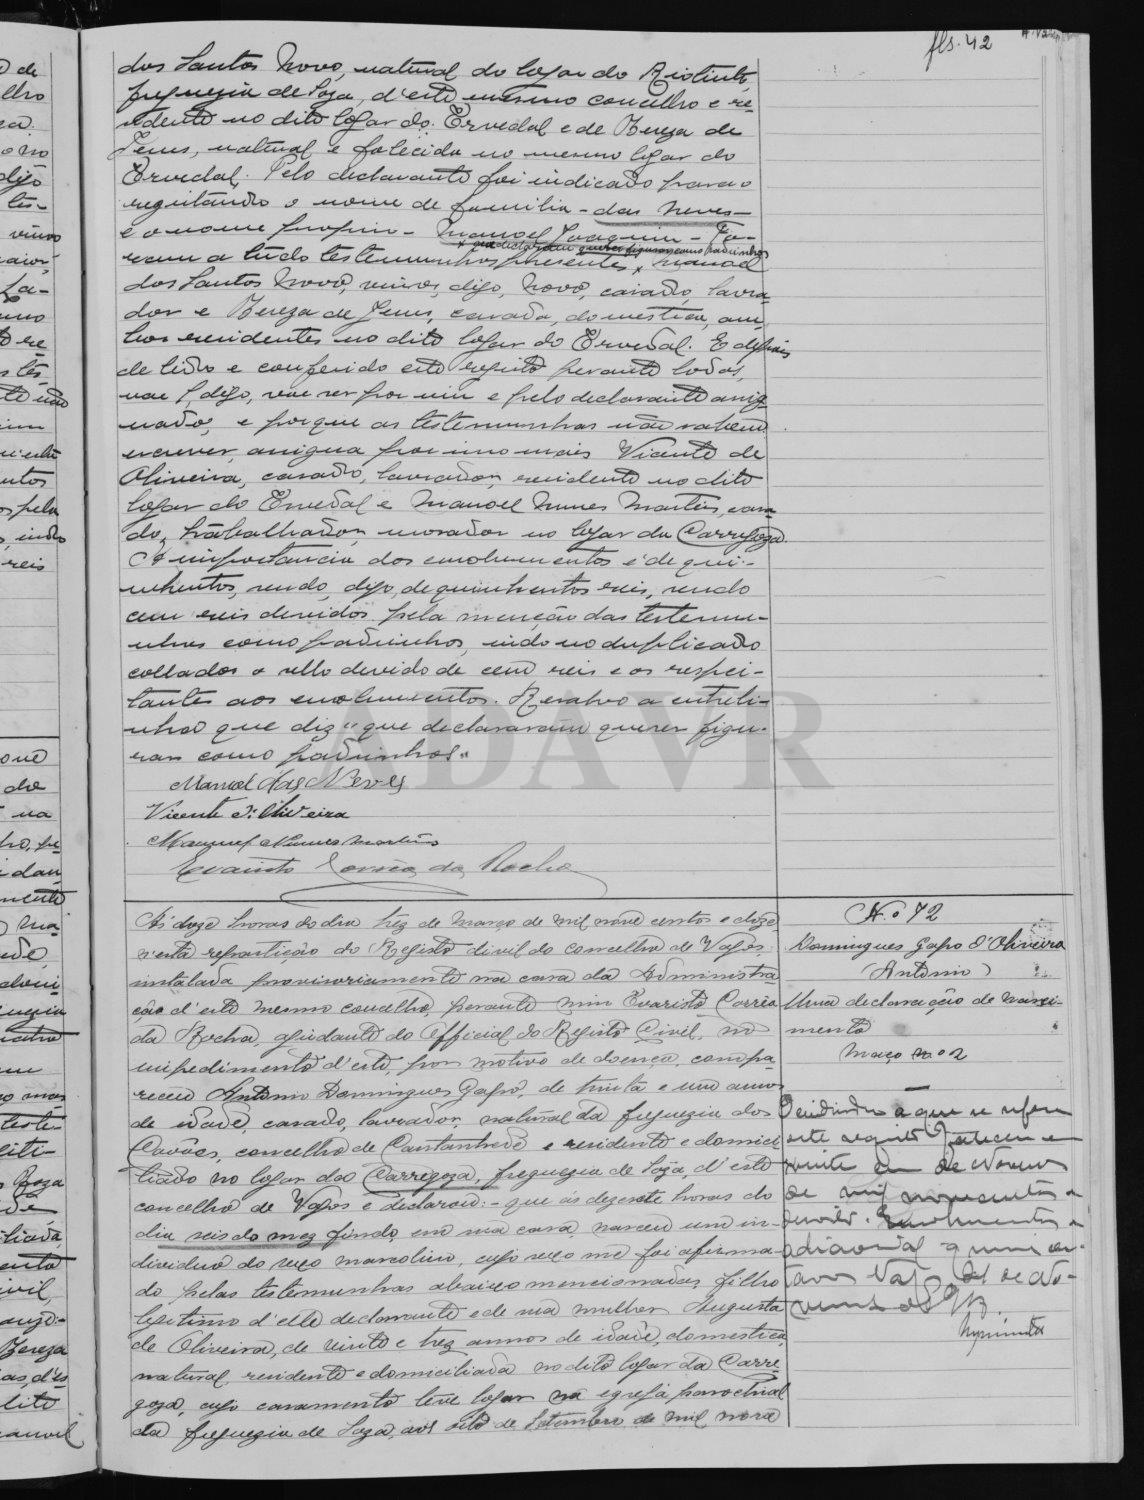 fls. 42
dos Santos Novo, natural do logar do Riotinto,
freguezia de Soza, d'este mesmo concelho e re-
sidente no dito logar do Ervedal e de Thereza de
Jesus, natural e falecida no mesmo logar do
Ervedal. Pelo declarante foi indicado para o
registando o nome de familia - das Neves -
e o nome proprio - Manoel Joaquim - Fo-
x que declararam querer figurar como padrinhos
ram a tudo testemunhas presentes, x Manoel
dos Santos Novo, viuvo, digo, Novo, casado, lavra-
dor e Thereza de Jesus, casada, domestica, am-
bos residentes no dito logar do Ervedal. E depois
de lido e conferido este registo perante todos,
vae, digo, vae ser por mim e pelo declarante assig-
nado, e porque as testemunhas não sabem
escrever, assigna por uma mais Vicente de
Oliveira, casado, lavrador, residente no dito
logar do Ervedal e Manoel Nunes Martins, casa-
do, trabalhador, morador no logar da Carregoza.
A importancia dos emolumentos é de qui-
nhentos, sendo, digo, de quinhentos reis, sendo
cem reis devidos pela menção das testemu-
nhas como padrinhos, indo no duplicado
collados o sello devido de cem reis e os respei-
tantes aos emolumentos. Resalvo a entreli-
nha que diz "que declararam querer figu-
rar como padrinhos"
Manoel das Neves
Vicente d'Oliveira
Manuel Nunes Martins
Evaristo Correia da Rocha
Ás doze horas do dia trez de Março de mil nove centos e doze
n'esta repartição do Registo Civil do concelho de Vagos
installada provisoriamente na casa da Administra-
ção d'este mesmo concelho, perante mim Evaristo Correia
da Rocha, ajudante do Official do Registo Civil, no
impedimento d'este, por motivo de doença, compa-
receu Antonio Domingues Gapo, de trinta e um annos
de idade, casado, lavrador, natural da freguezia dos
Covões, concelho de Cantanhede e residente e domici-
liado no logar da Carregoza, freguezia de Soza, d'este
concelho de Vagos e declarou: - que ás dezesete horas do
dia seis do mez findo, em sua casa, nasceu um in-
dividuo do sexo masculino, cujo sexo me foi afirma-
do pelas testemunhas abaixo mencionadas, filho
legitimo d'elle declarante e de sua mulher Augusta
de Oliveira, de vinte e trez annos de idade, domestica,
natural, residente e domiciliada no dito logar da Carre-
goza, cujo casamento teve logar na egreja parochial
da freguezia de Soza, aos oito de Setembro de mil nove
N.º 42
Domingues Gapo d'Oliveira
(Antonio)
Uma declaração de nasci-
mento
Março 3
O individuo a que se refere
este registo faleceu em
vinte de Novembro
de mil novecentos e
Emolumentos